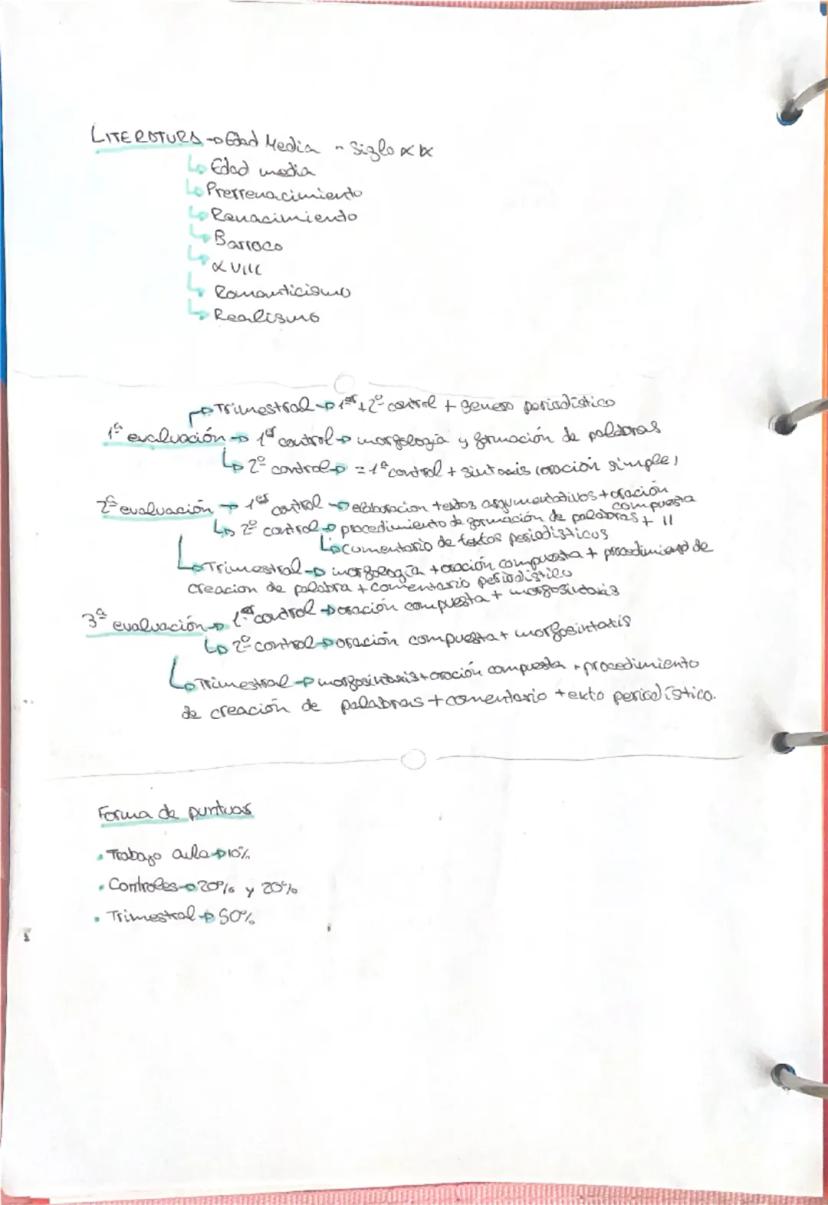 LITERATURA → Edad Media - Siglo XIX
↳ Edad media
↳ Prerrenacimiento
↳ Renacimiento
↳ Barroco
↳ XVIII
↳ Romanticismo
↳ Realismo
→ Trimestral → 1er + 2º control + genero periodístico
1ª evaluación → 1er control → morfología y formación de palabras
↳ 2º control → = 1er control + sintaxis (oración simple)
2ª evaluación → 1er control → elaboracion textos argumentativos + oración compuesta
↳ 2º control → procedimiento de formación de palabras + 11
↳ comentario de textos periodísticos
↳ Trimestral → morfología + oración compuesta + procedimiento de
creacion de palabra + comentario periodístico
3ª evaluación → 1er control → oración compuesta + morfosintaxis
↳ 2º control → oración compuesta + morfosintaxis
↳ Trimestral → morfosintaxis + oración compuesta + procedimiento
de creación de palabras + comentario texto periodístico.
Forma de puntuar
• Trabajo aula → 10%
• Controles → 20% y 20%
• Trimestral → 50%